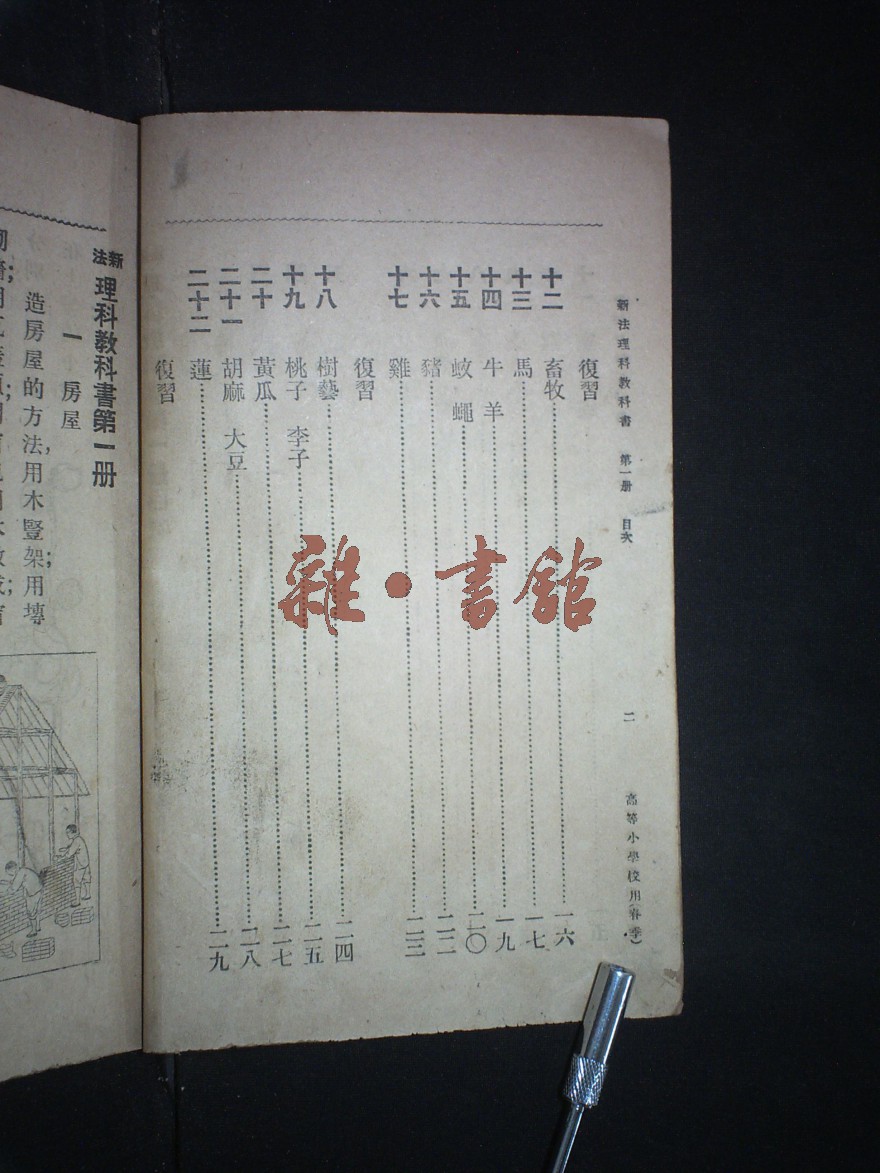 新法理科教科書 第一册 目次 二 高等小學校用(春季)
復習
十二 畜牧 一六
十三 馬 一七
十四 牛 羊 一九
十五 蚊 蠅 二〇
十六 豬 二二
十七 雞 二三
復習
十八 樹藝 二四
十九 桃子 李子 二五
二十 黃瓜 二七
二十一 胡麻 大豆 二八
二十二 蓮 二九
復習
新法 理科教科書第一册
一 房屋
造房屋的方法,用木豎架;用塼
雜·書館